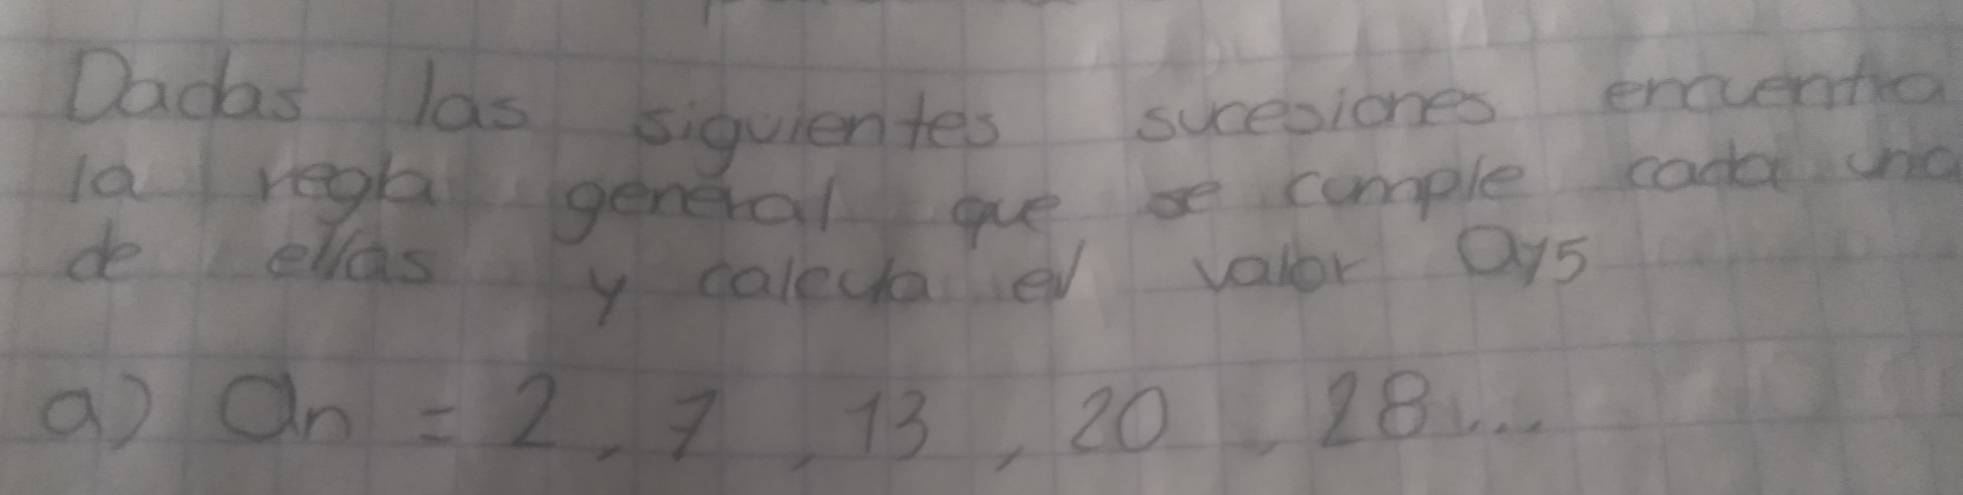 Dadas las siguientes sucesiones encuentra
la regla general que se cumple cada una
de ellas y calcula el valor a45
a) an = 2, 7, 13, 20, 28...